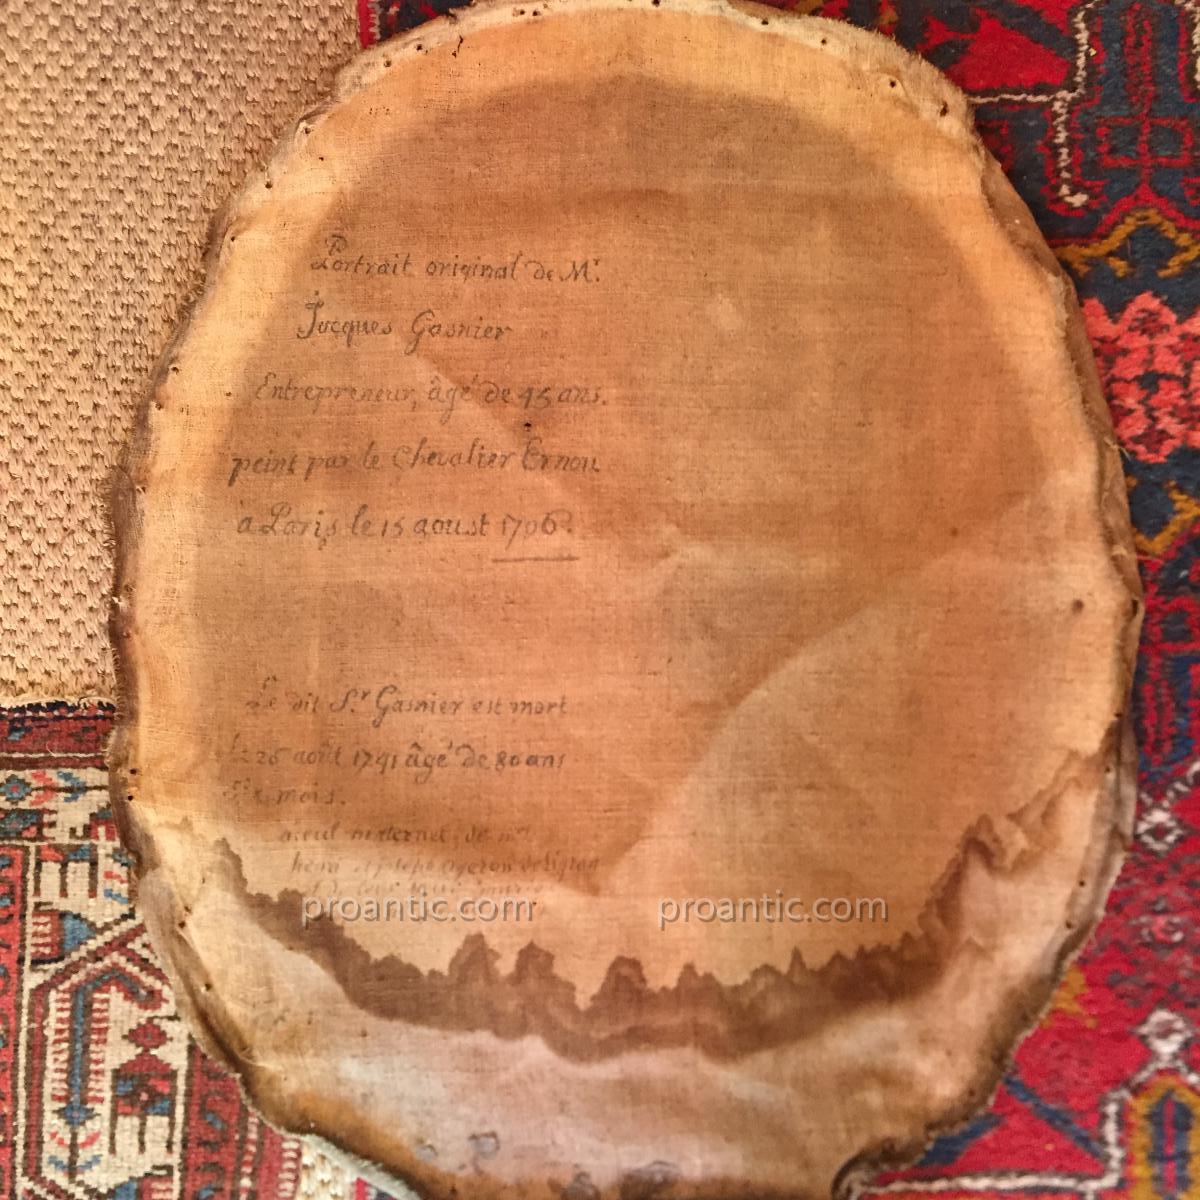 Portrait original de Mr.
Jacques Gasnier
Entrepreneur, âgé de 45 ans.
peint par le Chevalier Ernou
à Paris le 15 aoust 1706.
Le dit Sr. Gasnier est mort
le 26 août 1741 âgé de 80 ans
mois.
aieul maternel de
henri
et de
proantic.com proantic.com